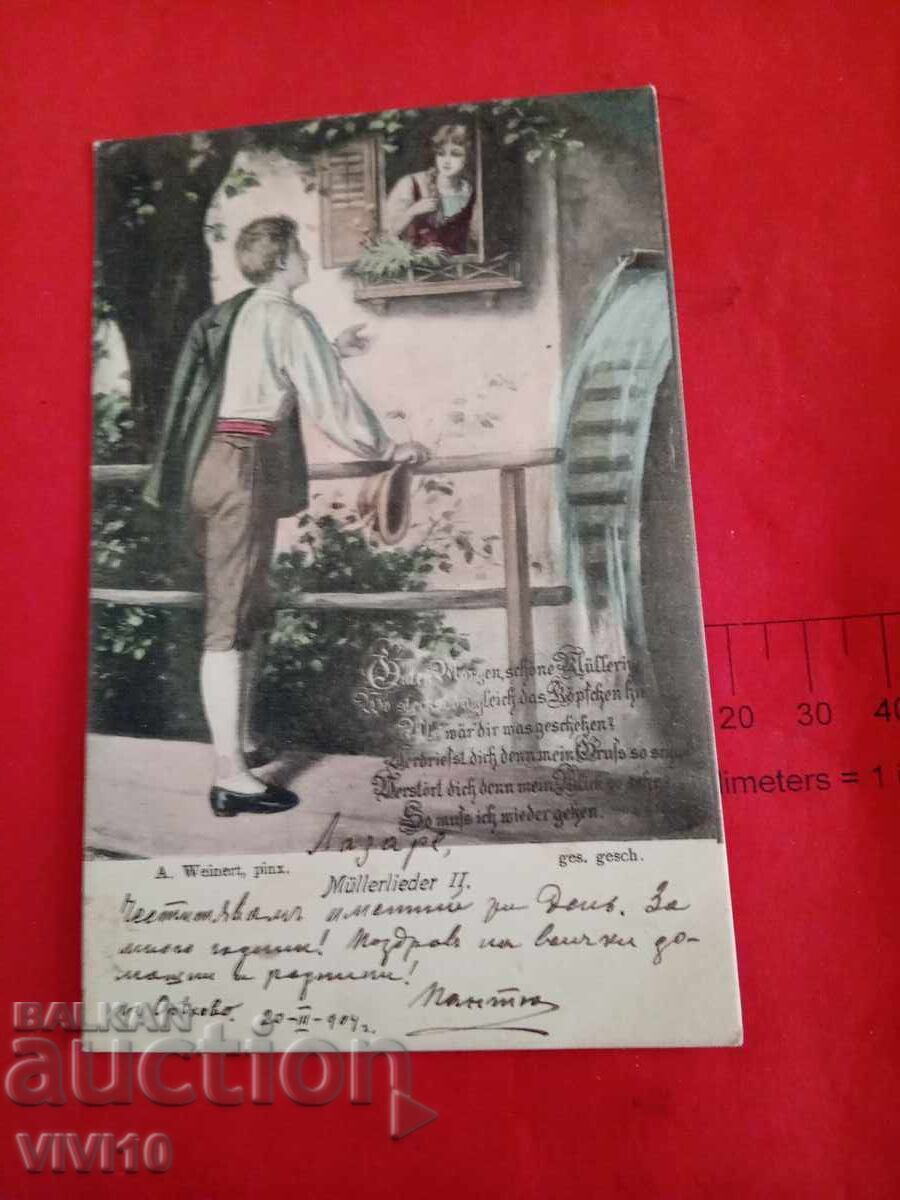 Guten Morgen, schöne Müllerin
Wo steckst du gleich das Köpfchen hin
Als wär' dir was geschehen?
Verdriesst dich denn mein Gruss so
Verstört dich denn mein Blick so sehr
So muss ich wieder gehen.
Лазаре,
A. Weinert, pinx.
ges. gesch.
Müllerlieder II.
Честитявамъ именния ри День. За
много години! Поздравъ на всички до-
машни и роднини!
Орѣхово. 20-III-904 г.
Пантю
20 30 40
limeters = 1
BALKAN
auction
VIVI10